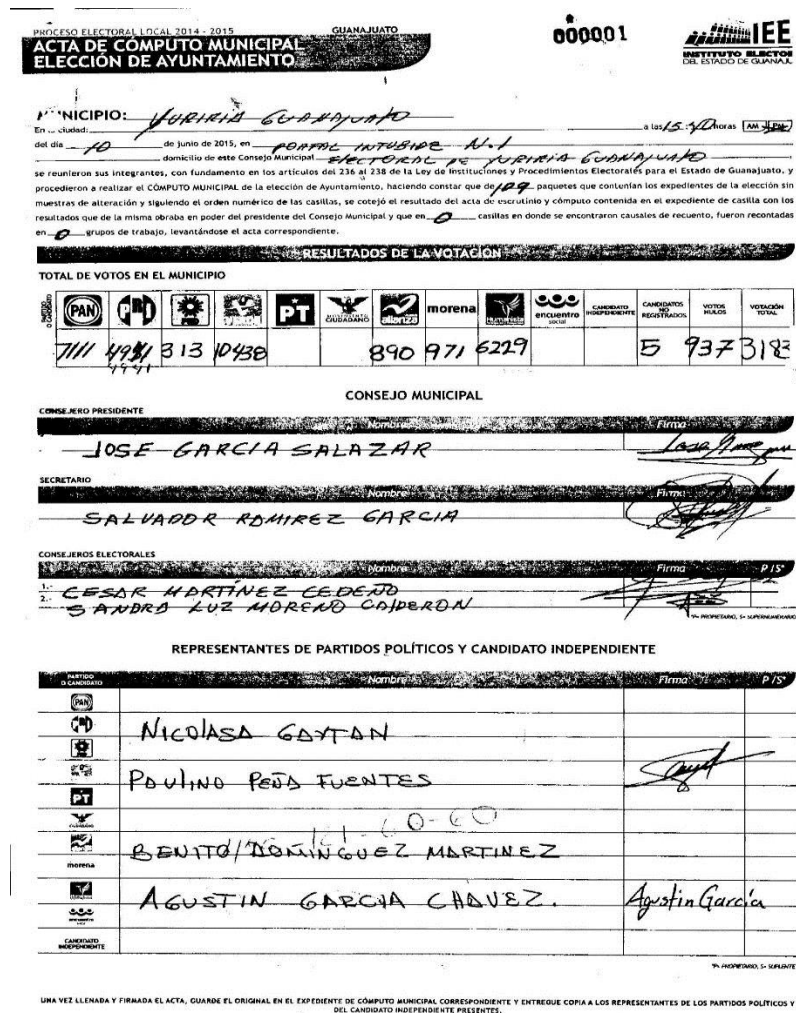 PROCESO ELECTORAL LOCAL 2014 - 2015 GUANAJUATO
ACTA DE CÓMPUTO MUNICIPAL
ELECCIÓN DE AYUNTAMIENTO
000001
IEE
INSTITUTO ELECTOR
DEL ESTADO DE GUANAJU
MUNICIPIO: YURIRIA GUANAJUATO
En ciudad: a las 15: horas AM
del día 10 de junio de 2015, en PORTAL N.1
domicilio de este Consejo Municipal ELECTORAL DE YURIRIA GUANAJUATO
se reunieron sus integrantes, con fundamento en los artículos del 236 al 238 de la Ley de Instituciones y Procedimientos Electorales para el Estado de Guanajuato, y
procedieron a realizar el CÓMPUTO MUNICIPAL de la elección de Ayuntamiento, haciendo constar que de 129 paquetes que contenían los expedientes de la elección sin
muestras de alteración y siguiendo el orden numérico de las casillas, se cotejó el resultado del acta de escrutinio y cómputo contenida en el expediente de casilla con los
resultados que de la misma obraba en poder del presidente del Consejo Municipal y que en 0 casillas en donde se encontraron causales de recuento, fueron recontadas
en 0 grupos de trabajo, levantándose el acta correspondiente.
RESULTADOS DE LA VOTACIÓN
TOTAL DE VOTOS EN EL MUNICIPIO
PARTIDO O CANDIDATO PAN PRD PT CIUDADANO alianza morena encuentro social CANDIDATO INDEPENDIENTE CANDIDATOS NO REGISTRADOS VOTOS NULOS VOTACIÓN TOTAL
7111 4941 313 10438 890 971 6229 5 937 3183
4941
CONSEJO MUNICIPAL
CONSEJERO PRESIDENTE
Nombre Firma
JOSE GARCIA SALAZAR
SECRETARIO
Nombre Firma
SALVADOR RAMIREZ GARCIA
CONSEJEROS ELECTORALES
Nombre Firma P/S*
1.- CESAR MARTÍNEZ CEDEÑO
2.- SANDRA LUZ MORENO CALDERON
*P= PROPIETARIO, S= SUPERNUMERARIO
REPRESENTANTES DE PARTIDOS POLÍTICOS Y CANDIDATO INDEPENDIENTE
PARTIDO O CANDIDATO Nombre Firma P/S*
PAN
PRD NICOLASA GAYTAN
PAULINO PEÑA FUENTES
PT
BENITO DOMINGUEZ MARTINEZ
morena
AGUSTIN GARCIA CHAVEZ. Agustin García
CANDIDATO INDEPENDIENTE
*P= PROPIETARIO, S= SUPLENTE
UNA VEZ LLENADA Y FIRMADA EL ACTA, GUARDE EL ORIGINAL EN EL EXPEDIENTE DE CÓMPUTO MUNICIPAL CORRESPONDIENTE Y ENTREGUE COPIA A LOS REPRESENTANTES DE LOS PARTIDOS POLÍTICOS Y
DEL CANDIDATO INDEPENDIENTE PRESENTES.